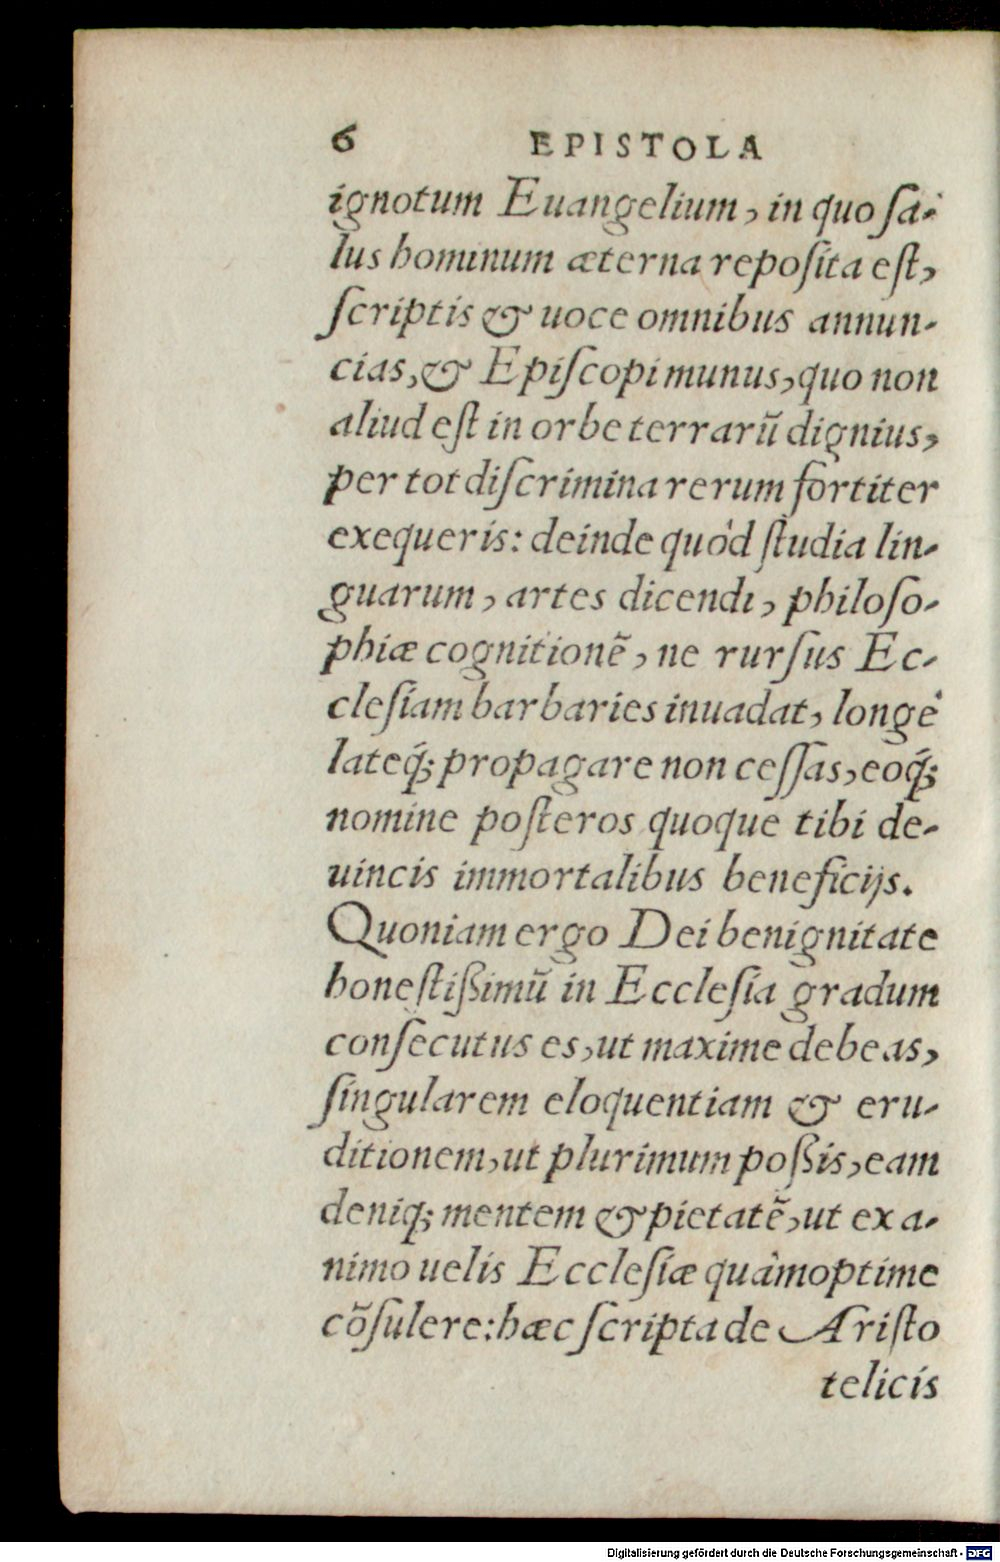 6 EPISTOLA
ignotum Euangelium, in quo ſa-
lus hominum æterna repoſita eſt,
ſcriptis & uoce omnibus annun-
cias, & Epiſcopi munus, quo non
aliud eſt in orbe terrarũ dignius,
per tot diſcrimina rerum fortiter
exequeris: deinde quòd ſtudia lin-
guarum, artes dicendi, philoſo-
phiæ cognitionẽ, ne rurſus Ec-
cleſiam barbaries inuadat, longè
lateq́; propagare non ceſſas, eoq́;
nomine poſteros quoque tibi de-
uincis immortalibus beneficijs.
Quoniam ergo Dei benignitate
honeſtißimũ in Eccleſia gradum
conſecutus es, ut maxime debeas,
ſingularem eloquentiam & eru-
ditionem, ut plurimum poßis, eam
deniq; mentem & pietatẽ, ut ex a-
nimo uelis Eccleſiæ quàm optime
cõſulere: hæc ſcripta de Ariſto
telicis
Digitalisierung gefördert durch die Deutsche Forschungsgemeinschaft - DFG